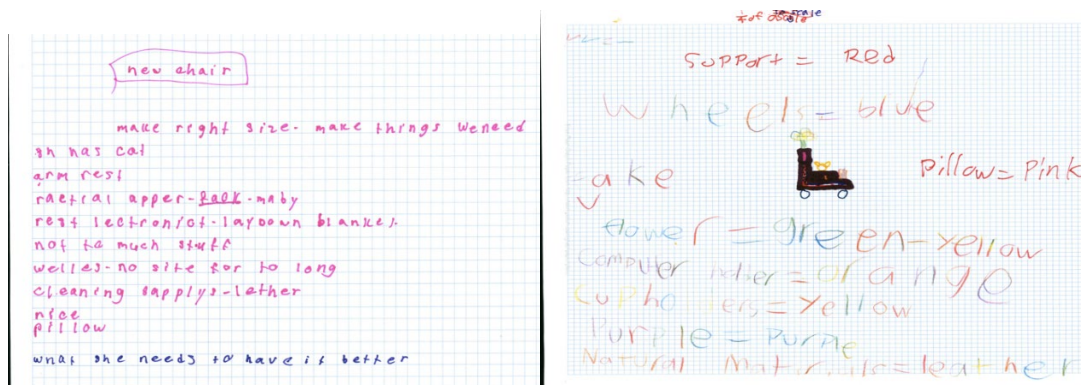 new chair
make right size. make things we need
sh has cat
arm rest
ractial apper-Rock-maby
rest lectronict-laydown blanket
not to much stuff
welles-no site for to long
cleaning sapplys-lether
nice
pillow
what she needs to have is better
to scale
Support = Red
Wheels = blue
ake
Pillow = Pink
flower = green-yellow
Computer = orange
Cup ho ers = Yellow
Purple = Purple
Natural = leather